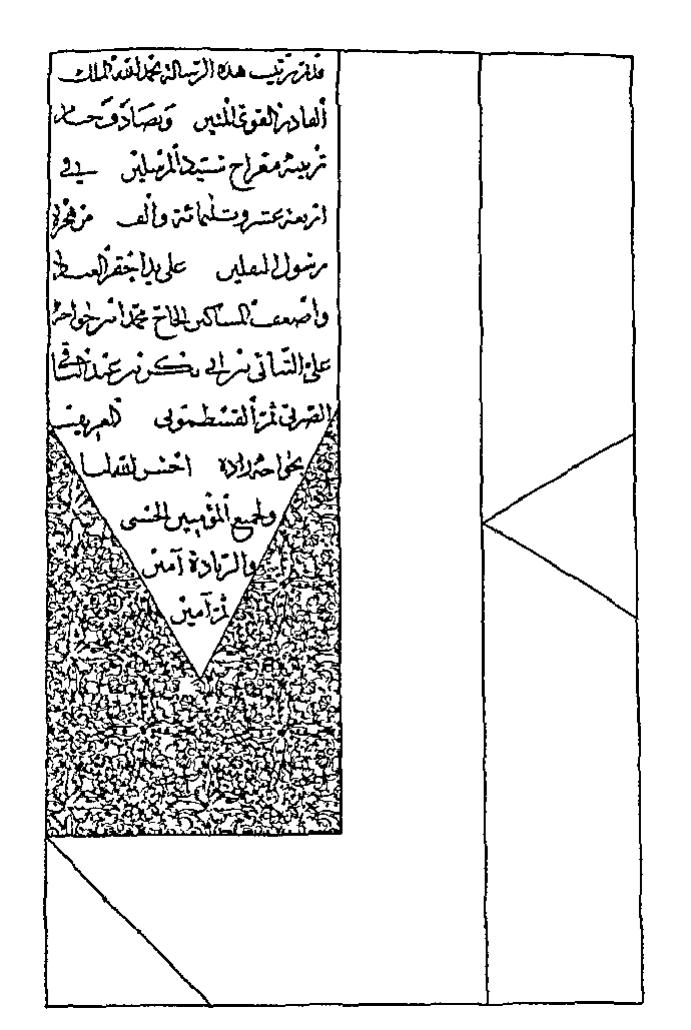 قد تم ترتيب هذه الرسالة بحمد الله الملك
القادر القوى المتين وبصادف ختام
تربيته معراج سيد المرسلين في
اربعة عشر وثلثمائة والف من هجرة
رسول الثقلين على يد احقر العباد
واضعف المساكين الحاج محمد امير خواجه
على الثانى بن ابى بكر بن عبد الباقى
ثم القسطمونى العريف
بخواجه زاده احسن الله لنا
ولجميع المؤمنين الحسنى
والزيادة آمين
ثم آمين